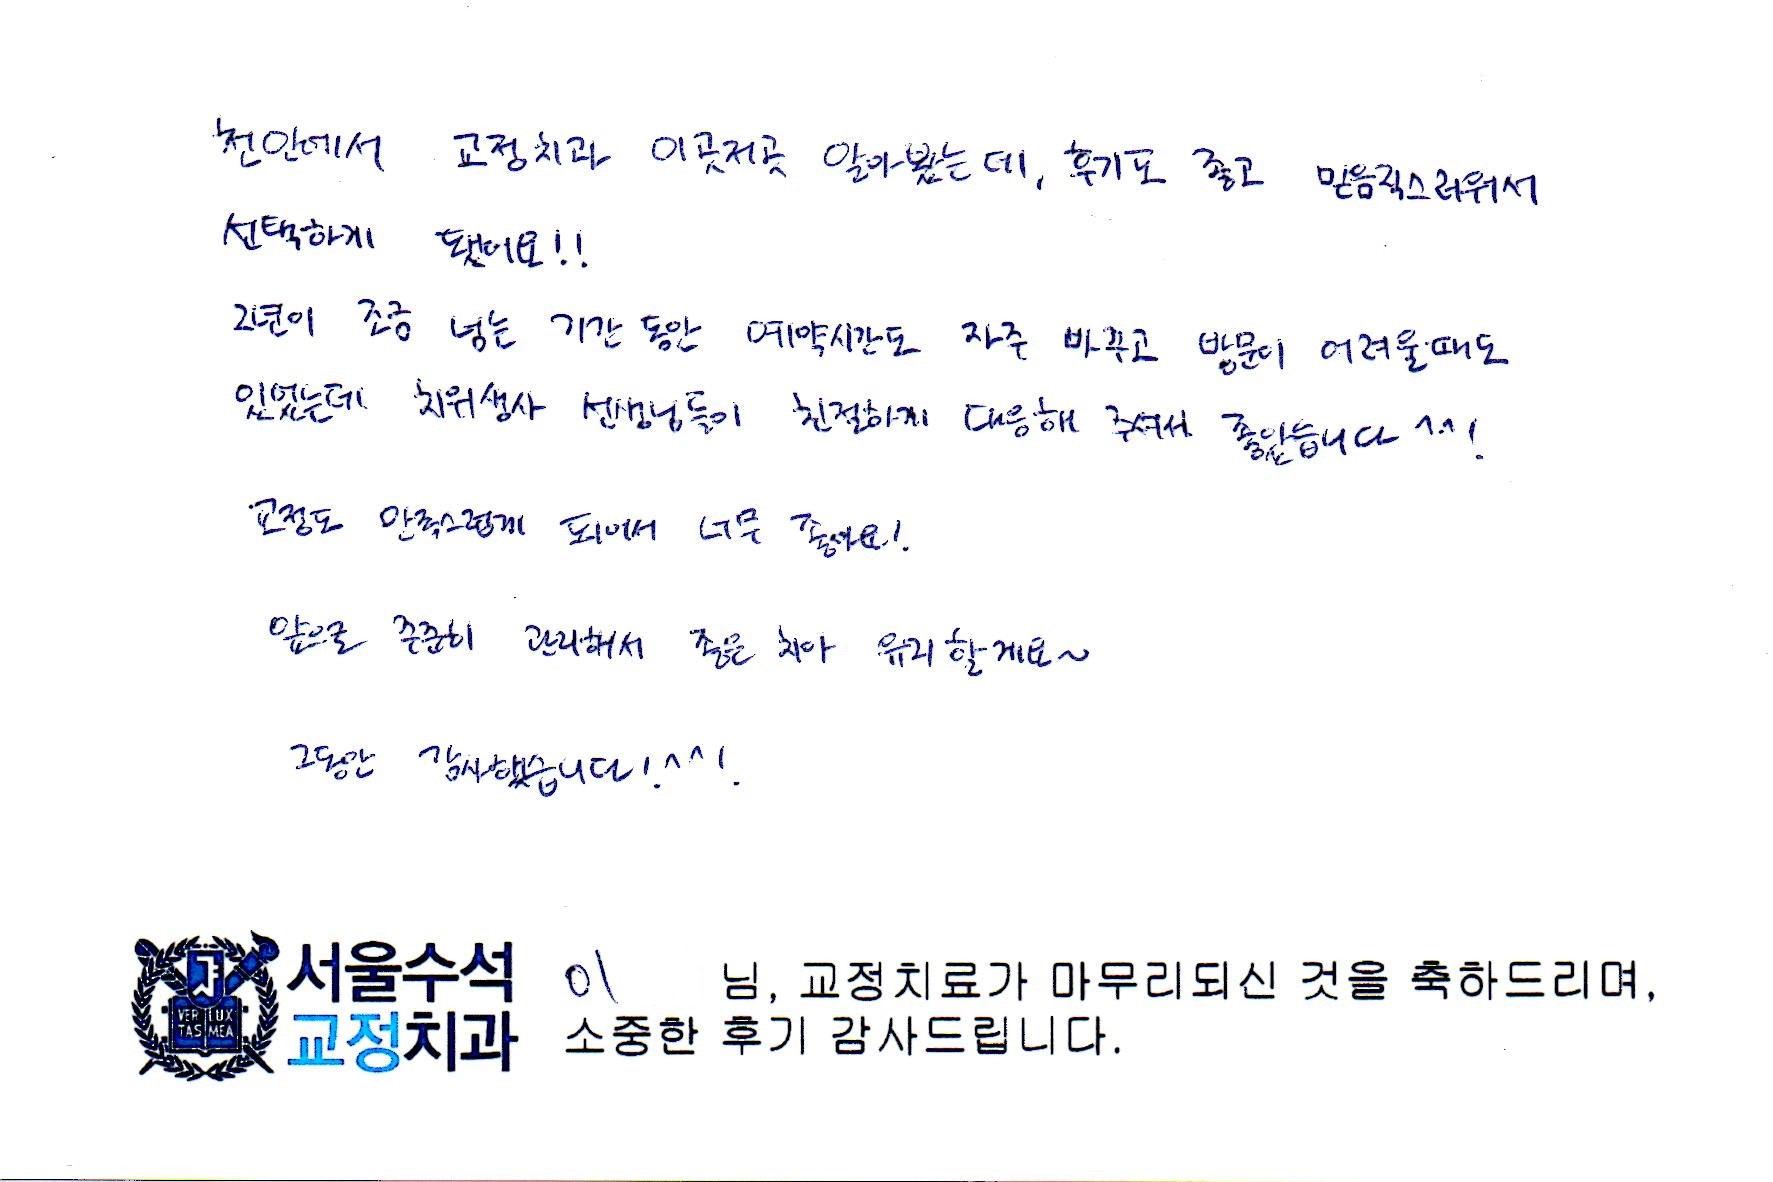 천안에서 교정치과 이곳저곳 알아봤는데, 후기도 좋고 믿음직스러워서
선택하게 됐어요!!
2년이 조금 넘는 기간 동안 예약시간도 자주 바꾸고 방문이 어려울때도
있었는데 치위생사 선생님들이 친절하게 대응해 주셔서 좋았습니다 ^^!
교정도 만족스럽게 되어서 너무 좋아요!
앞으로 꾸준히 관리해서 좋은 치아 유지할게요~
그동안 감사했습니다!^^!
서울수석
교정치과
VERI LUX
TAS MEA
이 님, 교정치료가 마무리되신 것을 축하드리며,
소중한 후기 감사드립니다.